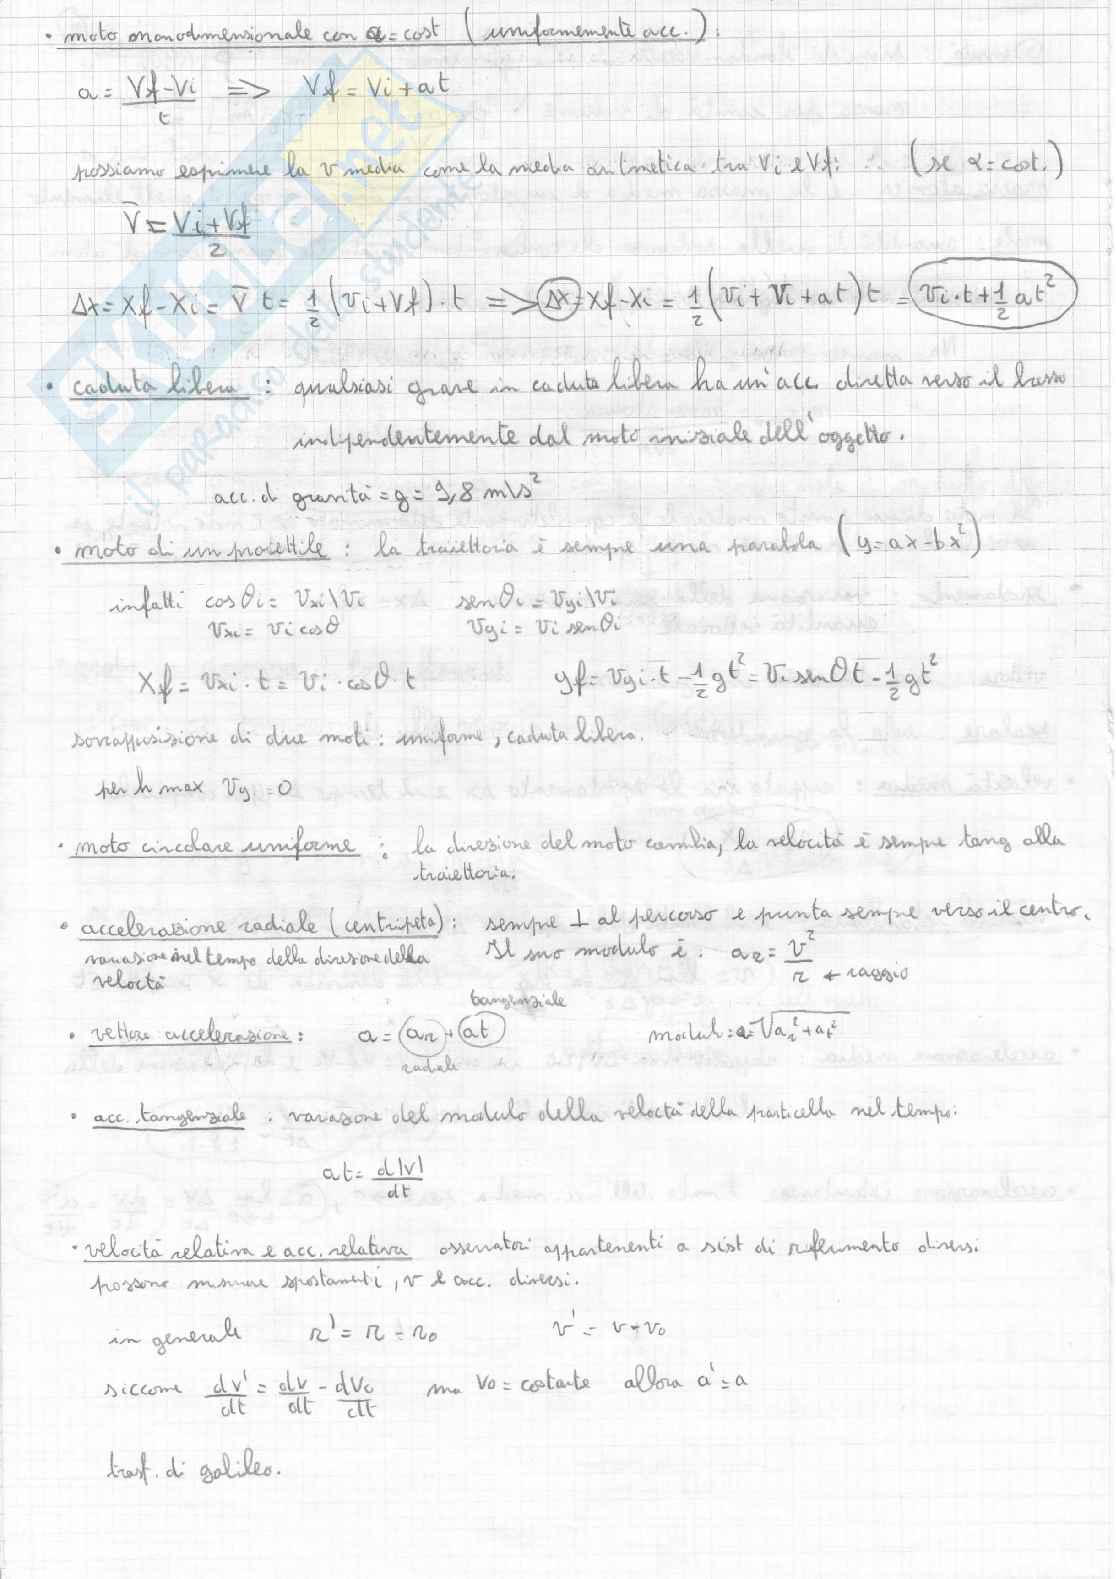 • moto monodimensionale con a = cost ( uniformemente acc. ) :
a = Vf-Vi / t => Vf = Vi + at
possiamo esprimere la v media come la media aritmetica tra Vi e Vf: (se a = cost.)
V̅ = Vi + Vf / 2
Δx = Xf - Xi = V̅ t = 1/2 (vi + Vf) · t => Δx = Xf - Xi = 1/2 (vi + Vi + at) t = vi · t + 1/2 at²
• caduta libera : qualsiasi grave in caduta libera ha un'acc. diretta verso il basso
indipendentemente dal moto iniziale dell'oggetto.
acc. di gravità = g = 9,8 m\s²
• moto di un proiettile : la traiettoria è sempre una parabola ( y = ax - bx² )
infatti cos θi = vxi\vi sen θi = vyi\vi
vxi = vi cos θ vyi = vi sen θi
Xf = vxi · t = vi · cos θ · t yf = vyi · t - 1/2 gt² = vi sen θ t - 1/2 gt²
sovrapposizione di due moti : uniforme, caduta libera.
per h max vyi = 0
• moto circolare uniforme : la direzione del moto cambia, la velocità è sempre tang alla
traiettoria.
• accelerazione radiale (centripeta) : sempre ⊥ al percorso e punta sempre verso il centro.
variazione nel tempo della direzione della Il suo modulo è : ar = v² / r ← raggio
velocità
tangenziale
• vettore accelerazione : a = ar + at modul : a = √ar² + at²
radiale
• acc. tangenziale : variazione del modulo della velocità della particella nel tempo:
at = d|v| / dt
• velocità relativa e acc. relativa osservatori appartenenti a sist di riferimento diversi
possono misurare spostamenti, v e acc. diversi.
in generale r' = r - r0 v' = v - v0
siccome dv'/dt = dv/dt - dv0/dt ma v0 = costante allora a' = a
trasf. di galileo.
SKUOLA.net
il paradiso dello studente